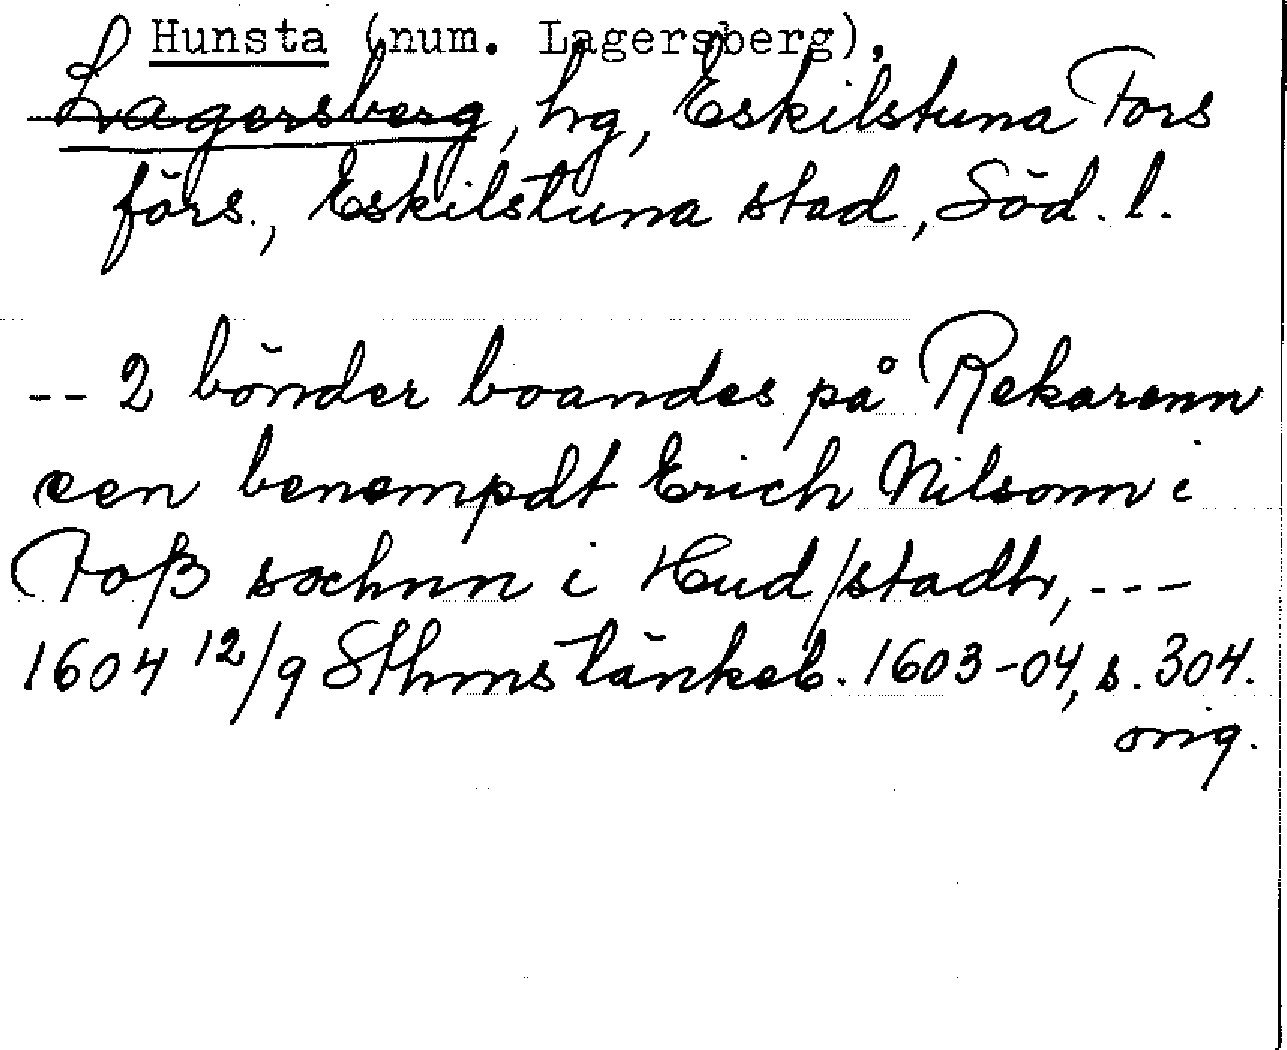 Hunsta (num. Lagersberg),
Lagersberg, hg, Eskilstuna Fors
förs., Eskilstuna stad, Söd. l.
-- 2 bönder boandes på Rekarenn
een benempdt Erich Nilsonn i
Foß sochnn i Hud/stadh, ---
1604 12/9 Sthms tänkeb. 1603-04, s. 304.
orig.